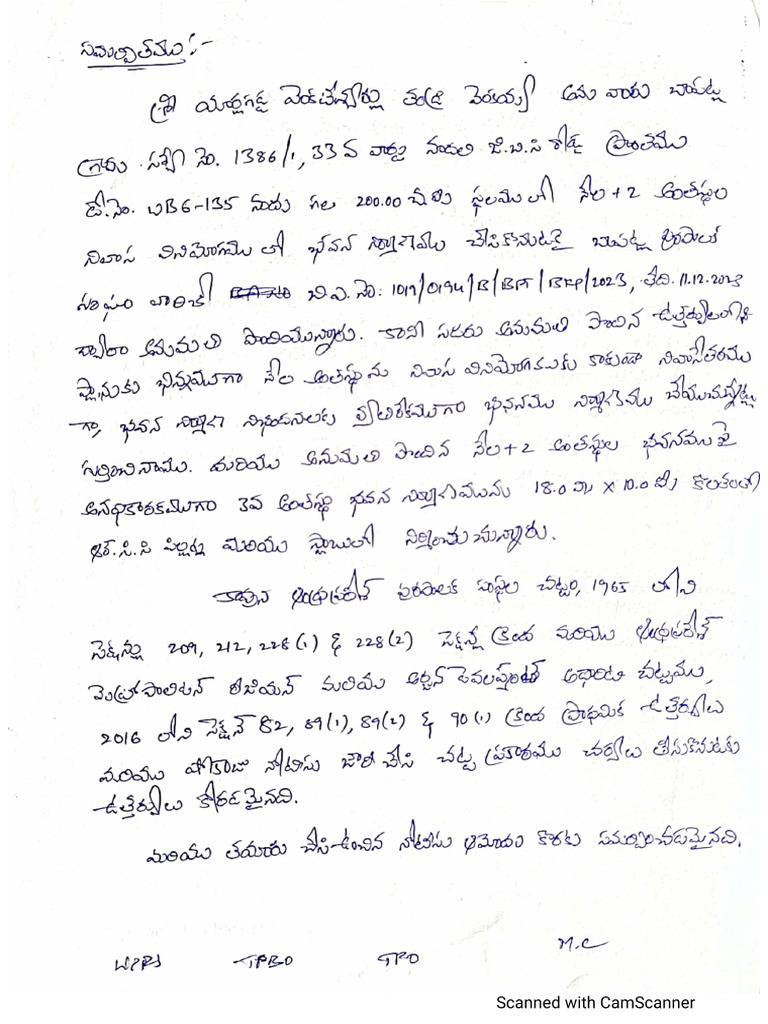 సమర్పితము:-
శ్రీ యార్లగడ్డ వెంకటేశ్వర్లు తండ్రి వెంకయ్య అను వారు బాపట్ల
గ్రామ సర్వే నెం. 1386/1, 33వ వార్డు నందలి జి.బి.సి రోడ్డ్ ప్రాంతము
డో.నెం. 6-135 నందు గల 200.00 చ.గ స్థలములో నేల+2 అంతస్థుల
నివాస వినియోగములో భవన నిర్మాణము చేసికొనుటకై బాపట్ల పురపాలక
సంఘం వారిచే బి.ఎ.నెం: 1019/0194/B/BPT/2023, తేది.11.12.2023
ద్వారా అనుమతి పొందియున్నారు. కానీ సదరు అనుమతి పొందిన ఉత్తర్వులలోని
ప్లానుకు భిన్నముగా నేల అంతస్థును నివాస వినియోగమునకు కాకుండా నివాసేతరము
గా, భవన నిర్మాణ నిబంధనలకు వ్యతిరేకముగా భవనము నిర్మాణము చేయుచున్నట్లు
గుర్తించినాము. మరియు అనుమతి పొందిన నేల+2 అంతస్థుల భవనముపై
అనధికారకముగా 3వ అంతస్థు భవన నిర్మాణమును 18.0 మీ x 10.0 మీ కొలతలతో
ఆర్.సి.సి పిల్లర్లు మరియు స్లాబులో నిర్మించుచున్నారు.
కావున ఆంధ్రప్రదేశ్ పురపాలక సంఘాల చట్టం, 1965 లోని
సెక్షన్లు 209, 212, 228(1) & 228(2) సెక్షన్ల క్రింద మరియు ఆంధ్రప్రదేశ్
మెట్రోపాలిటన్ రీజియన్ మరియు అర్బన్ డెవలప్మెంట్ అథారిటీ చట్టము,
2016 లోని సెక్షన్ 82, 89(1), 89(2) & 90(1) క్రింద ప్రాథమిక ఉత్తర్వులు
మరియు షోకాజు నోటీసు జారీ చేసి చట్ట ప్రకారము చర్యలు తీసుకొనుటకు
ఉత్తర్వులు కోరడమైనది.
మరియు తయారు చేసి ఉంచిన నోటీసు ఆమోదం కొరకు సమర్పించడమైనది.
WPRS TPBO TPO M.C
Scanned with CamScanner